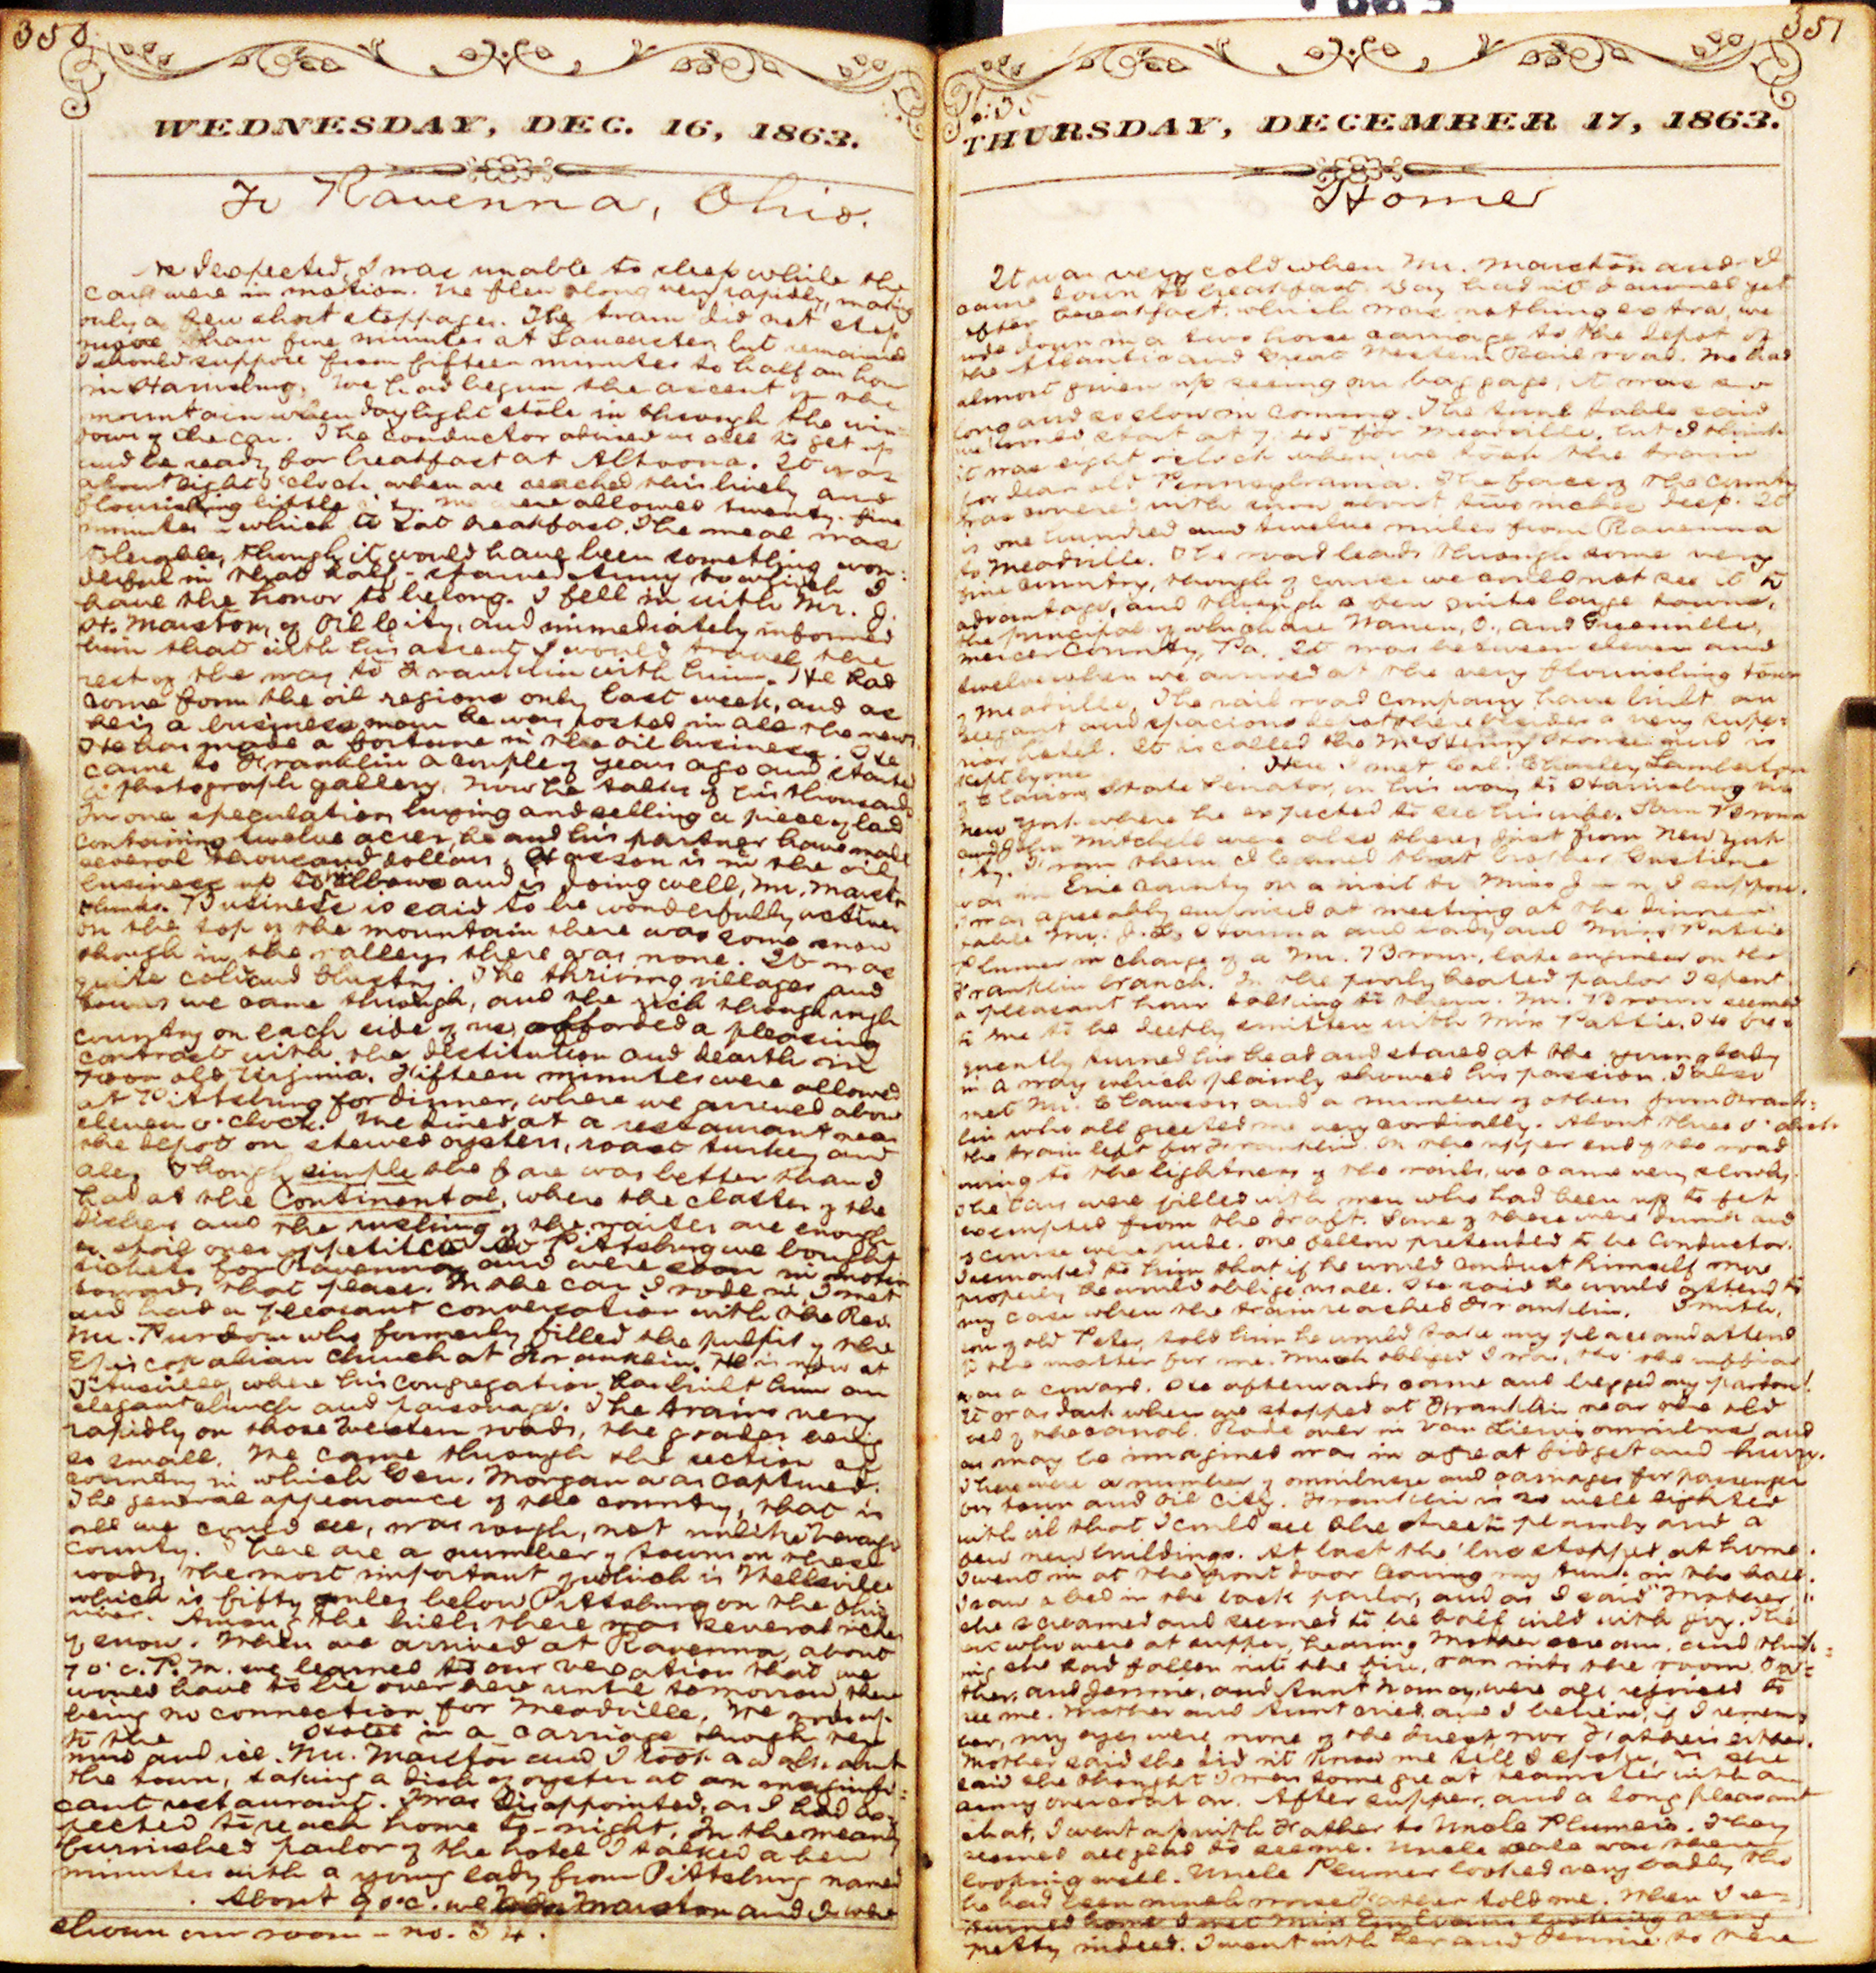 350
WEDNESDAY, DEC. 16, 1863.
To Ravenna, Ohio.
As I expected, I was unable to sleep while the
cars were in motion. We flew along very rapidly, making
only a few short stoppages. The train did not stop
more than five minutes at Lancaster, but remained
I should suppose from fifteen minutes to half an hour
in Harrisburg. We had begun the ascent of the
mountain when daylight stole in through the win-
dows of the car. The conductor advised us all to get up
and be ready for breakfast at Altoona. It was
about eight o'clock when we reached this lively and
flourishing little city. We were allowed twenty-five
minutes in which to eat breakfast. The meal was
tolerable, though it would have been something won-
derful in that half-starved Army to which I
have the honor to belong. I fell in with Mr. J.
H. Marston, of Oil City, and immediately informed
him that with his assent I would travel the
rest of the way to Franklin with him. He had
come from the oil regions only last week, and as
he is a business man he was posted in all the news.
He has made a fortune in the oil business. He
came to Franklin a couple of years ago and started
a photograph gallery. Now he talks of his thousands.
In one speculation, buying and selling a piece of land
containing twelve acres, he and his partner have made
several thousand dollars. is in the oil
business up to his elbows and is doing well, Mr. Marston
thinks. Business is said to be wonderfully active.
On the top of the mountain there was some snow
though in the valleys there was none. It was
quite cold and blustry. The thriving villages and
towns we came through, and the rich though rough
country on each side of us, afforded a pleasing
contrast with the destitution and dearth in
poor old Virginia. Fifteen minutes were allowed
at Pittsburg for dinner, where we arrived about
eleven o'clock. We dined at a restaurant near
the depot on stewed oysters, roast turkey and
ale. Though simple the fare was better than I
had at the Continental, where the clatter of the
dishes and the rushing of the waiters are enough
to spoil ones appetite. At Pittsburg we bought
tickets for Ravenna and were soon in motion
towards that place. In the car I rode in I met
and had a pleasant conversation with the Rev.
Mr. Purdon who formerly filled the pulpit of the
Episcopalian church at Franklin. He is now at
Titusville, where his congregation has built him an
elegant church and parsonage. The trains very
rapidly on those Western roads, the grades being
so small. We came through the section of
country in which Gen. Morgan was captured.
The general appearance of the country, that is
all we could see, was rough, not unlike Venango
County. There are a number of towns on these
roads, the most important of which is Wellsville
which is fifty miles below Pittsburg on the Ohio
river. Among the hills there was several inches
of snow. When we arrived at Ravenna, about
7 o'c. P.M. we learned to our vexation that we
would have to lie over here until tomorrow, there
being no connection for Meadville. We rode up
to the Hotel in a carriage through
mud and ice. Mr. Marston and I took a walk about
the town, taking a dish of oysters at an insignifi-
cant restaurant. I was disappointed, as I had ex-
pected to reach home to-night. In the meanly
furnished parlor of the hotel I talked a few
minutes with a young lady from Pittsburg named
. About 9 o'c. we Marston and I were
shown our room - no. 34.
351
6:35
THURSDAY, DECEMBER 17, 1863.
Home
It was very cold when Mr. Marston and I
came down to breakfast. Day hadn't dawned yet.
After breakfast, which was nothing extra, we
rode down in a two horse carriage to the depot of
the Atlantic and Great Western Rail road. We had
almost given up seeing our baggage, it was so
long and so slow in coming. The time table said
we would start at 7:45 for Meadville, but I think
it was eight o'clock when we took the train
for dear old Pennsylvania. The face of the country
was covered with snow about two inches deep. It
is one hundred and twelve miles from Ravenna
to Meadville. The road leads through some very
fine country, though of course we could not see it to
advantage, and through a few quite large towns,
the principal of which are Warren, O., and Greenville,
Mercer County, Pa. It was between eleven and
twelve when we arrived at the very flourishing town
of Meadville. The rail road company have built an
elegant and spacious depot there besides a very supe-
rior hotel. It is called the McHenry House and is
kept by one . Here I met Col. Charley Lamberton
of Clarion, State Senator, on his way to Harrisburg via
New York where he expected to see his wife. Sam Brown
and John Mitchell were also there, just from New York
City. From them I learned that brother
was in Erie County on a visit to Miss J n I suppose.
I was agreeably surprised at meeting at the dinner
table Mr. J. L. Hanna and lady, and Miss Pattie
Plumer in charge of a Mr. Brown, late engineer on the
Franklin branch. In the poorly heated parlor I spent
a pleasant hour talking to them. Mr. Brown seemed
to me to be deeply smitten with Miss Pattie. He fre-
quently turned his head and stared at the young lady
in a way which plainly showed his passion. I also
met Mr. Clawson and a number of others from Frank-
lin who all greeted me very cordially. About three o'clock
the train left for Franklin. On the upper end of the road
owing to the lightness of the rails, we came very slowly.
The cars were filled with men who had been up to get
exempted from the draft. Some of these were drunk and
of course were rude. One fellow pretended to be conductor.
I remarked to him that if he would conduct himself more
properly he would oblige us all. He said he would attend to
my case when the train reached Franklin. Smith,
son of old Peter, told him he would take my place and attend
to the matter for me. Much obliged I was, tho' the ruffian
was a coward. He afterwards came and begged my pardon.
It was dark when we stopped at Franklin near the old
bed of the canal. Rode over in Van omnibus, and
as may be imagined was in a great fidget and hurry.
There were a number of omnibuses and carriages for passengers
for town and Oil City. Franklin is so well lighted
with oil that I could see the streets plainly and a
few new buildings. At last the 'bus stopped at home.
I went in at the front door leaving my trunk in the hall.
I saw a bed in the back parlor, and as I said "Mother"
she screamed and seemed to be half wild with joy. The
who were at supper, hearing Mother scream, and think-
ing she had fallen into the fire, ran into the room. Fa-
ther, and Jennie, and Aunt Nancy, were all rejoiced to
see me. Mother and Aunt cried, and I believe, if I remem-
ber, my eyes were none of the dryest, nor Father's either.
Mother said she didn't know me till I spoke, as she
said she thought I was some great teamster with an
army overcoat on. After supper, and a long pleasant
chat, I went up with Father to Uncle Plumer's. They
seemed all glad to see me. Uncle was there
looking well. Uncle Plumer looked very badly tho'
he had been much worse Father told me. When I re-
turned home I met Miss Em Evans looking very
pretty indeed. I went with her and Jennie to